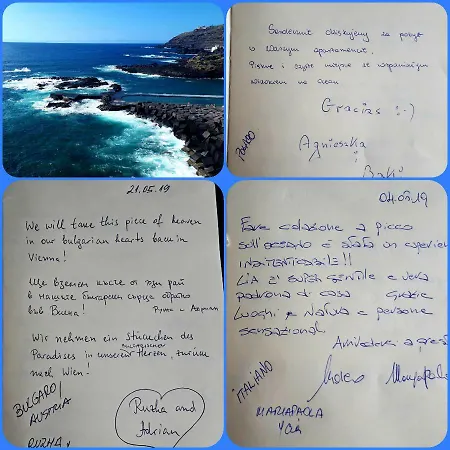 Serdecznie dziękujemy za pobyt
w Waszym apartamencie.
Piękne i czyste miejsce ze wspaniałym
widokiem na ocean.
Gracias :-)
Agnieszka
21.05.19
We will take this piece of heaven
in our bulgarian hearts back in
Vienna!
Ще вземем късче от този рай
в нашите български сърца обратно
във Виена!
Ружа и Адриан
Wir nehmen ein Stückchen des
Paradises in unseren Herzen, zurück
nach Wien!
BULGARO/
AUSTRIA
RUZHA
Ruzha and
Adrian
04.05.19
Fare colazione a picco
sull'oceano è stata un'esperien
INDIMENTICABILE!!
LIA È SUPER GENTILE e vera
padrona di casa grazie
Luoghi e Natura e persone
sensazionali.
Arrivederci a prest
ITALIANO
MARIAPAOLA